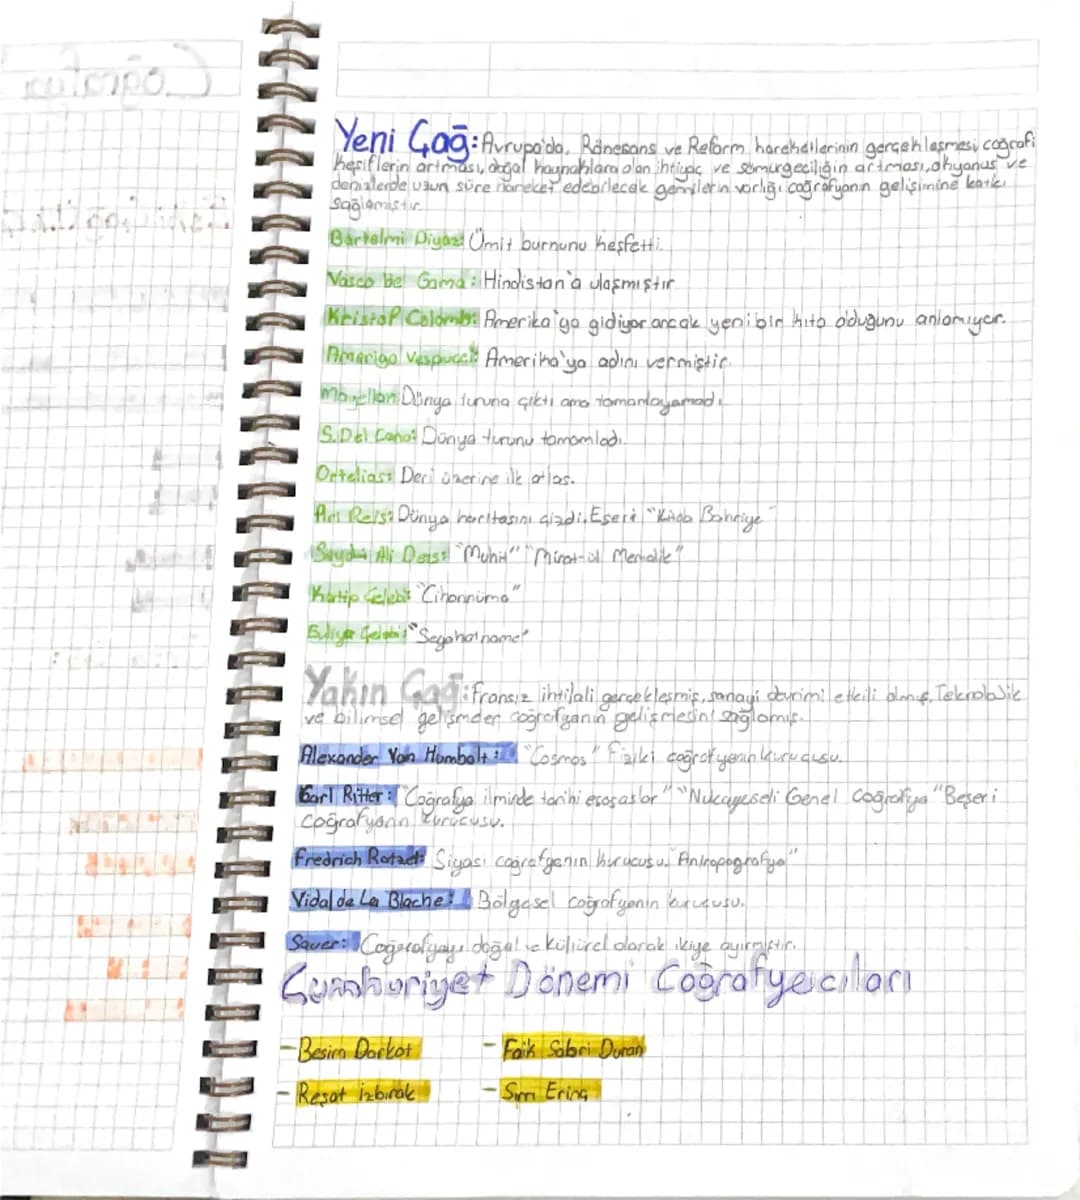 Yeni Çağ: Avrupa'da, Rönesans ve Reform hareketlerinin gerçekleşmesi, coğrafi
keşiflerin artması, doğal kaynaklara olan ihtiyaç ve sömürgeciliğin artması, okyanus ve
denizlerde uzun süre hareket edebilecek gemilerin varlığı coğrafyanın gelişimine katkı
sağlamıştır.
Bartelmi Diyaz: Ümit burnunu keşfetti.
Vasco De Gama: Hindistan'a ulaşmıştır
Kristof Colomb: Amerika'ya gidiyor ancak yeni bir kıta olduğunu anlamıyor.
Amerigo Vespucci: Amerika'ya adını vermiştir.
Magellan: Dünya turuna çıktı ama tamamlayamadı.
S. Del Cano: Dünya turunu tamamladı.
Ortelias: Deri üzerine ilk atlas.
Piri Reis: Dünya haritasını çizdi. Eseri "Kitab Bahriye"
Ali "Muhit" "Mirat-ül Memalik"
Katip Çelebi: "Cihannüma"
Evliya Çelebi: "Seyahatname"
Yakın Çağ: Fransız ihtilali gerçekleşmiş, sanayi devrimi etkili olmuş. Teknolojik
ve bilimsel gelişmeler coğrafyanın gelişmesini sağlamış.
Alexander Von Humbolt: "Cosmos" Fiziki coğrafyanın kurucusu.
Karl Ritter: "Coğrafya ilminde tarihi esasatlar" "Mukayeseli Genel Coğrafya" Beşeri
Coğrafyanın kurucusu.
Fredrich Ratzel: Siyasi coğrafyanın kurucusu. "Antropografya"
Vidal de La Blache: Bölgesel coğrafyanın kurucusu.
Sauer: Coğrafyayı doğal ve kültürel olarak ikiye ayırmıştır.
Cumhuriyet Dönemi Coğrafyacıları
- Besim Darkot - Faik Sabri Duran
- Reşat izbırak - Sırrı Erinç